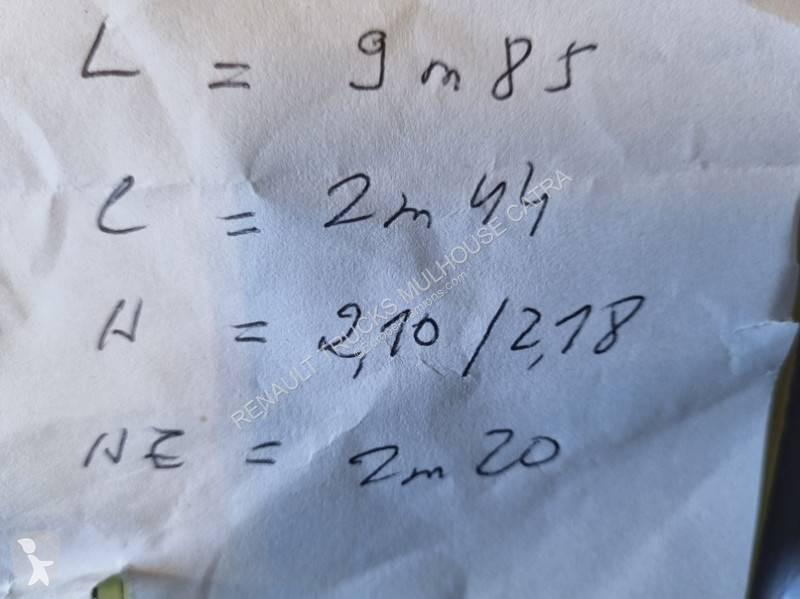 L = 9m85
l = 2m44
H = 2,10/2,18
HE = 2m20
RENAULT TRUCKS MULHOUSE CATRA